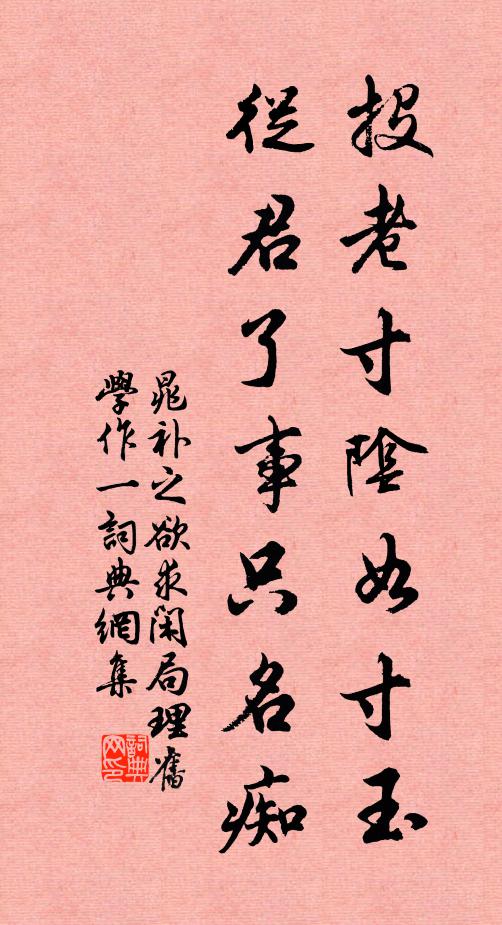 投老寸陰如寸玉
從君了事只名痴
晁补之欲求閑局理舊
學作一詞典網集
詞典网印